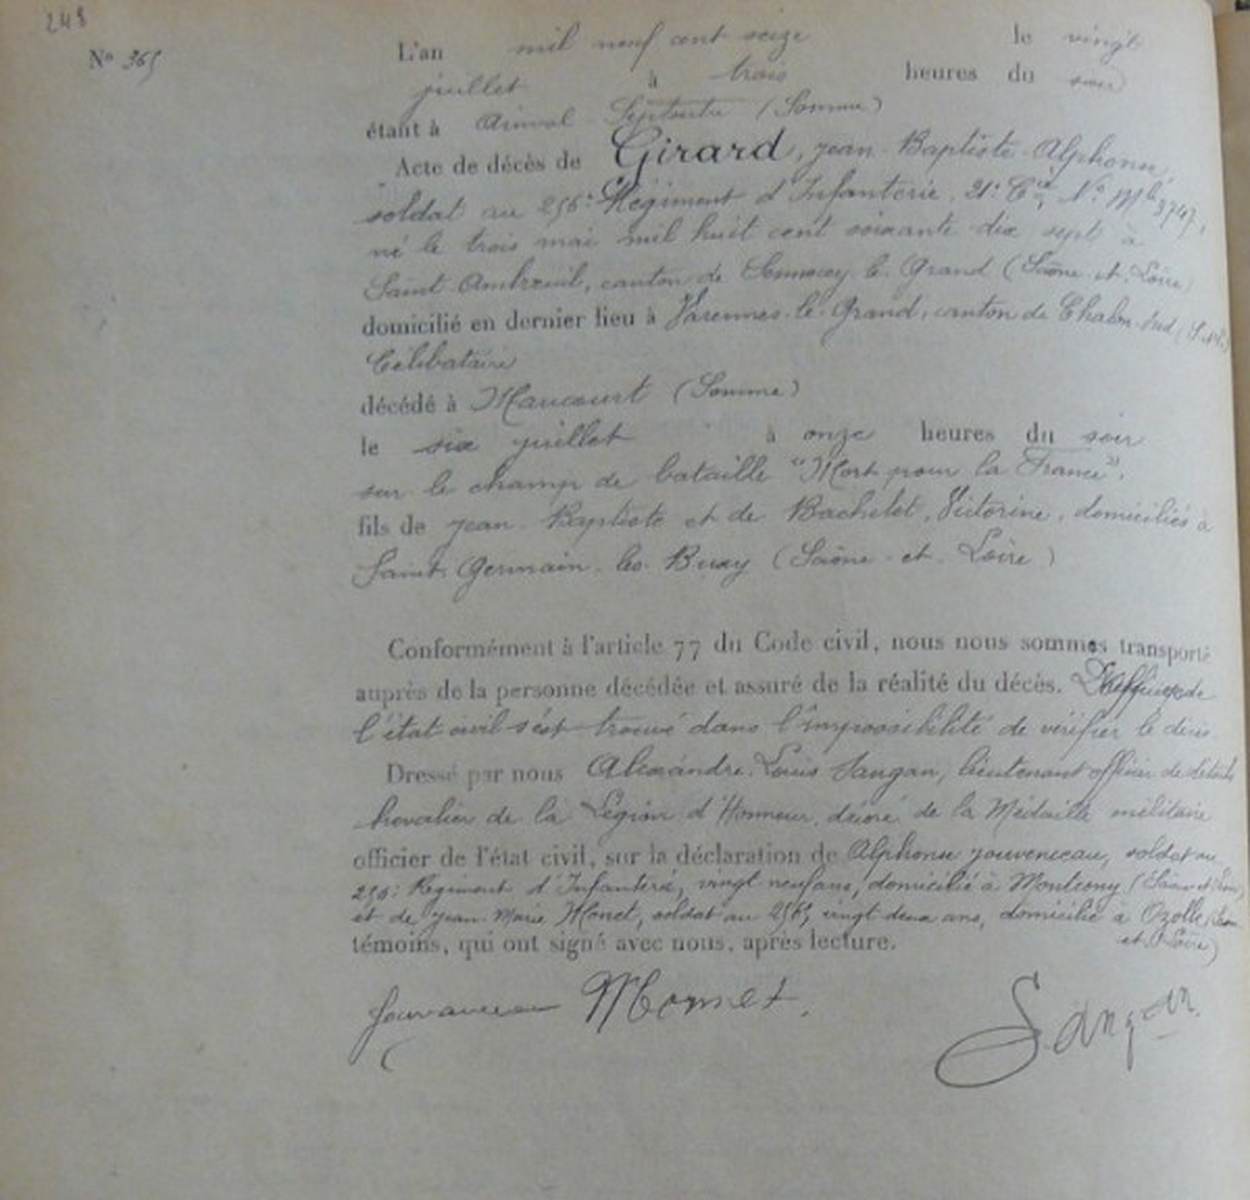 248
N° 365
L'an mil neuf cent seize le vingt
juillet à trois heures du soir
étant à Ainval Septoutre (Somme)
Acte de décès de Girard, Jean Baptiste Alphonse,
soldat au 256e Régiment d'Infanterie, 21e Cie, No Mle 3747,
né le trois mai mil huit cent soixante dix sept à
Saint Ambreuil, canton de Sennecey le Grand (Saône et Loire)
domicilié en dernier lieu à Varennes-le-Grand, canton de Chalon-Sud (S.-et-L.)
Célibataire
décédé à Maucourt (Somme)
le six juillet à onze heures du soir
sur le champ de bataille "Mort pour la France",
fils de Jean Baptiste et de Bachelet, Victorine, domiciliés à
Saint Germain-les-Buxy (Saône-et-Loire)
Conformément à l'article 77 du Code civil, nous nous sommes transporté
auprès de la personne décédée et assuré de la réalité du décès. L'officier de
l'état civil s'est trouvé dans l'impossibilité de vérifier le décès.
Dressé par nous Alexandre, Louis Sangan, lieutenant officier de détails
chevalier de la Légion d'Honneur, décoré de la Médaille militaire
officier de l'état civil, sur la déclaration de Alphonse Jouvenceau, soldat au
256e Régiment d'Infanterie, vingt neuf ans, domicilié à Montcony (Saône et Loire),
et de Jean-Marie Monet, soldat au 256e, vingt deux ans, domicilié à Ozolle (Saône
et Loire)
témoins, qui ont signé avec nous, après lecture.
Jouvanceau Monnet. Sangan